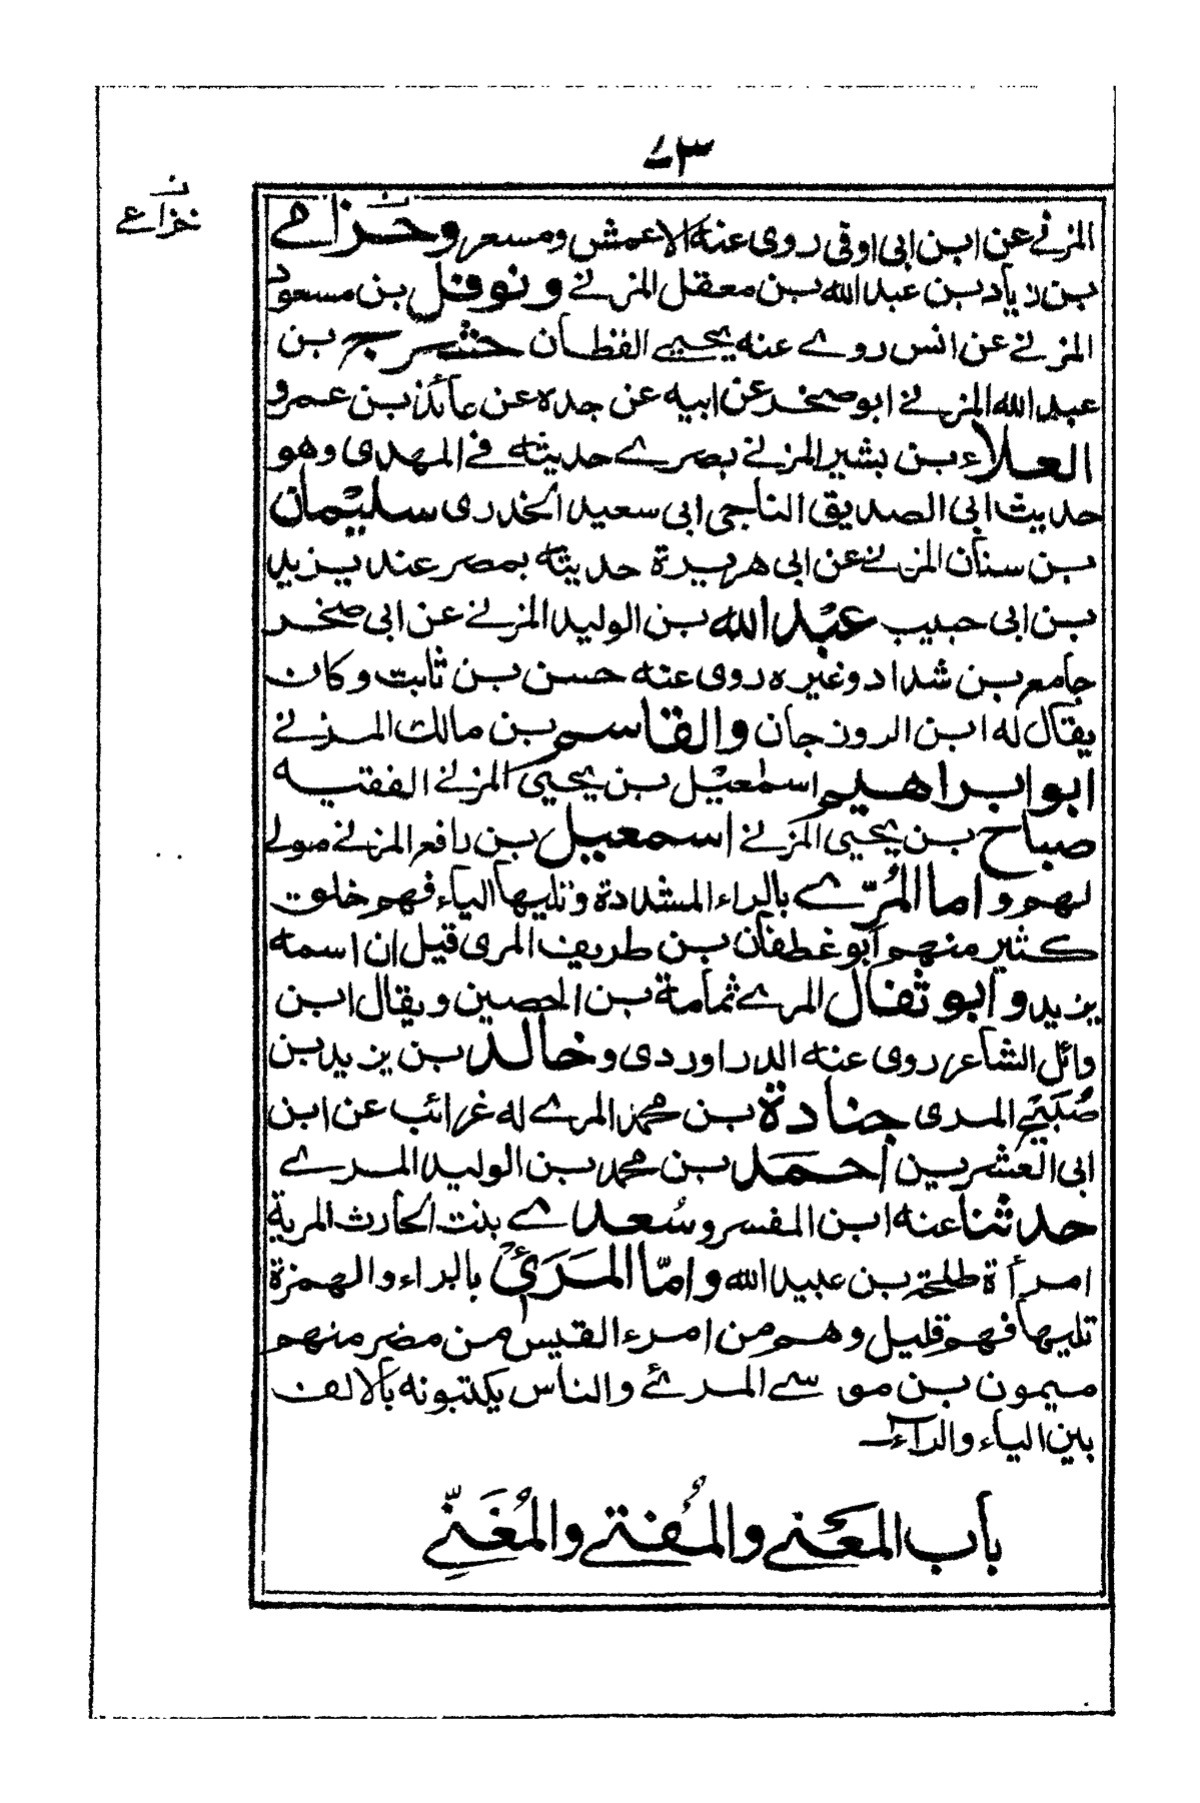 ٧٣
ن
خزاعي
المزني عن ابن ابى اوفى روى عنه الاعمش ومسعر وخزاعي
بن زياد بن عبد الله بن معقل المزني ونوفل بن مسعود
المزني عن انس روے عنه يحيى القطان حشرج بن
عبد الله المزني ابو صخر عن ابيه عن جده عن عائذ بن عمرو
العلاء بن بشير المزني بصرے حديثه في المهدى وهو
حديث ابى الصديق الناجى ابى سعيد الخدرى سليمان
بن سنان المزني عن ابى هريرة حديثه بمصر عند يزيد
بن ابى حبيب عبد الله بن الوليد المزني عن ابى صخر
جامع بن شداد وغيره روى عنه حسن بن ثابت وكان
يقال له ابن الروزجان والقاسم بن مالك المزني
ابو ابراهيم اسمعيل بن يحيى المزني الفقيه
صباح بن يحيى المزني اسمعيل بن رافع المزني مولى
لهم واما المُرّے بالراء المشددة وتليها الياء فهم خلق
كثير منهم ابو غطفان بن طريف المرى قيل ان اسمه
يزيد وابو ثفال المرے ثمامة بن الحصين ويقال ابن
وائل الشاعر روى عنه الدراوردى وخالد بن يزيد بن
صُبَيح المرى جنادة بن محمد المرے له غرائب عن ابن
ابى العشرين احمد بن محمد بن الوليد المرے
حدثنا عنه ابن المفسر وسُعدے بنت الحارث المرية
امرأة طلحة بن عبيد الله وامّا المَرَئيْ بالراء والهمزة
تليها فهم قليل وهم من امرء القيس من مضر منهم
ميمون بن موسے المرئے والناس يكتبونه بالالف
بين الياء والراء
باب المَعْني والمُفتي والمُغَنِّي